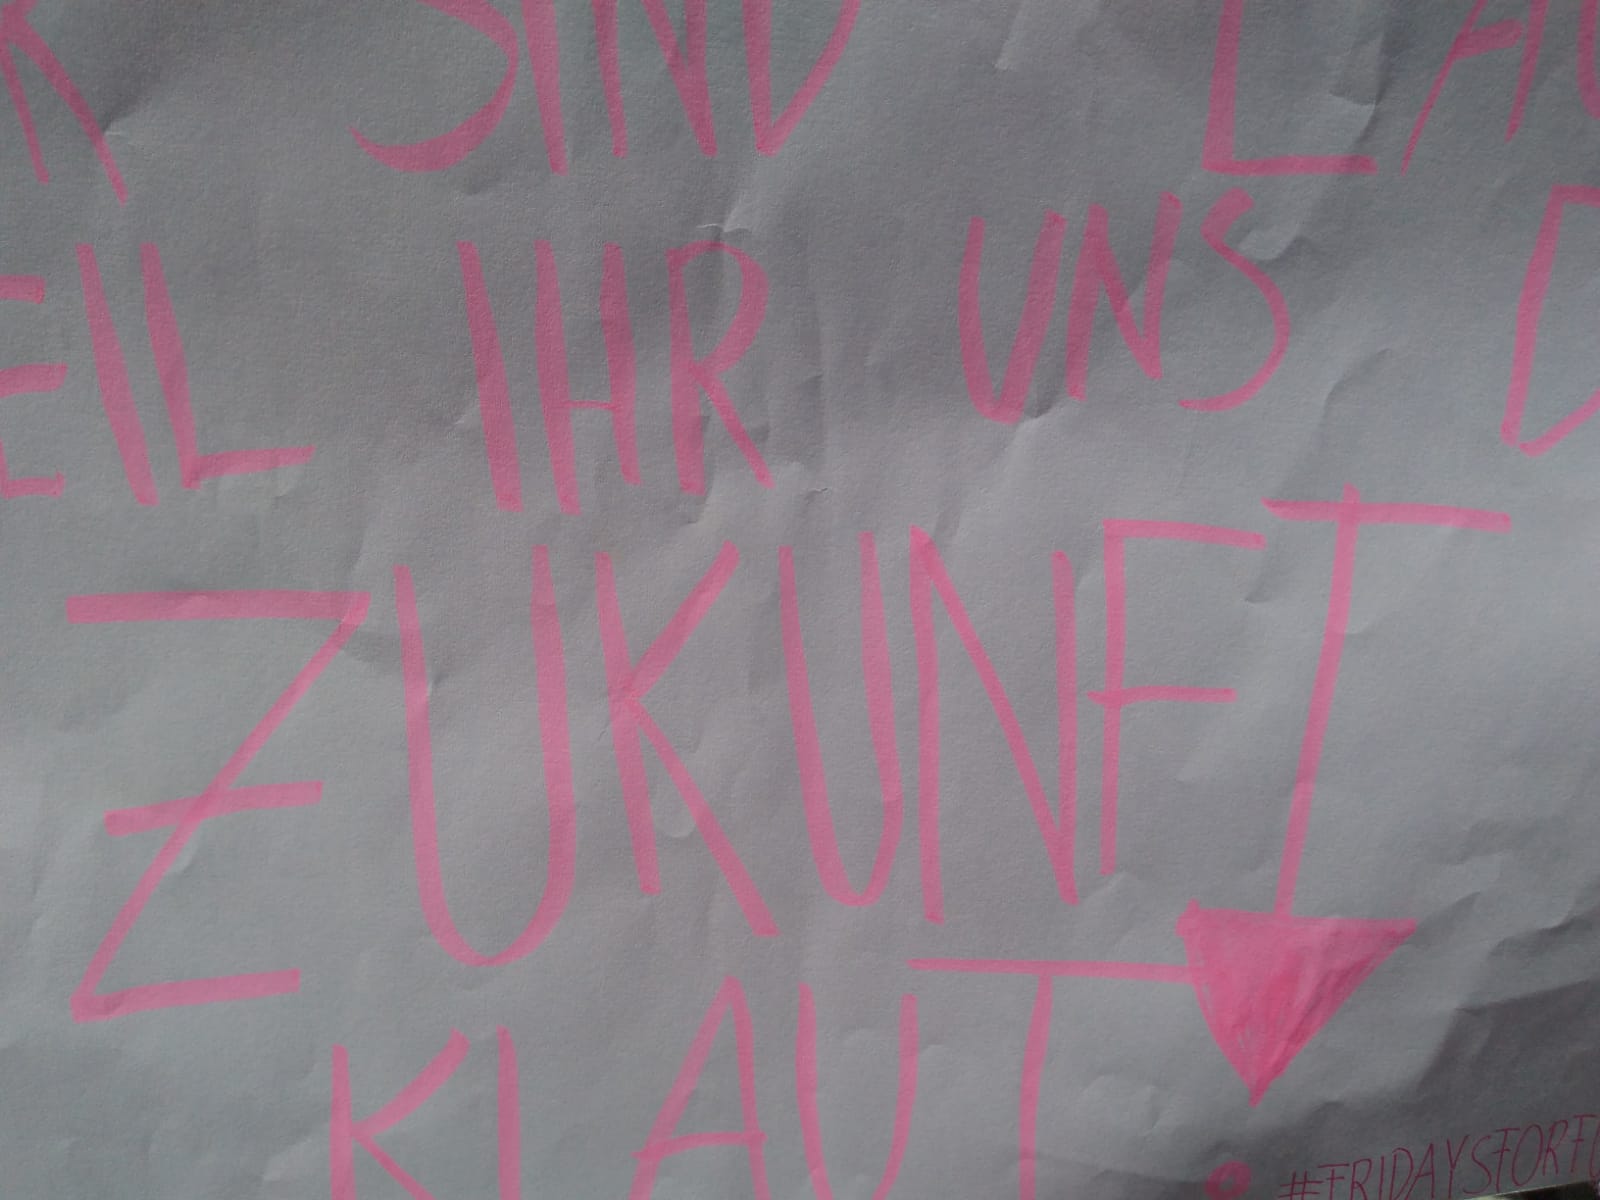 R SIND LAU
EIL IHR UNS D
ZUKUNFT
KLAUT!
#FRIDAYSFORFU